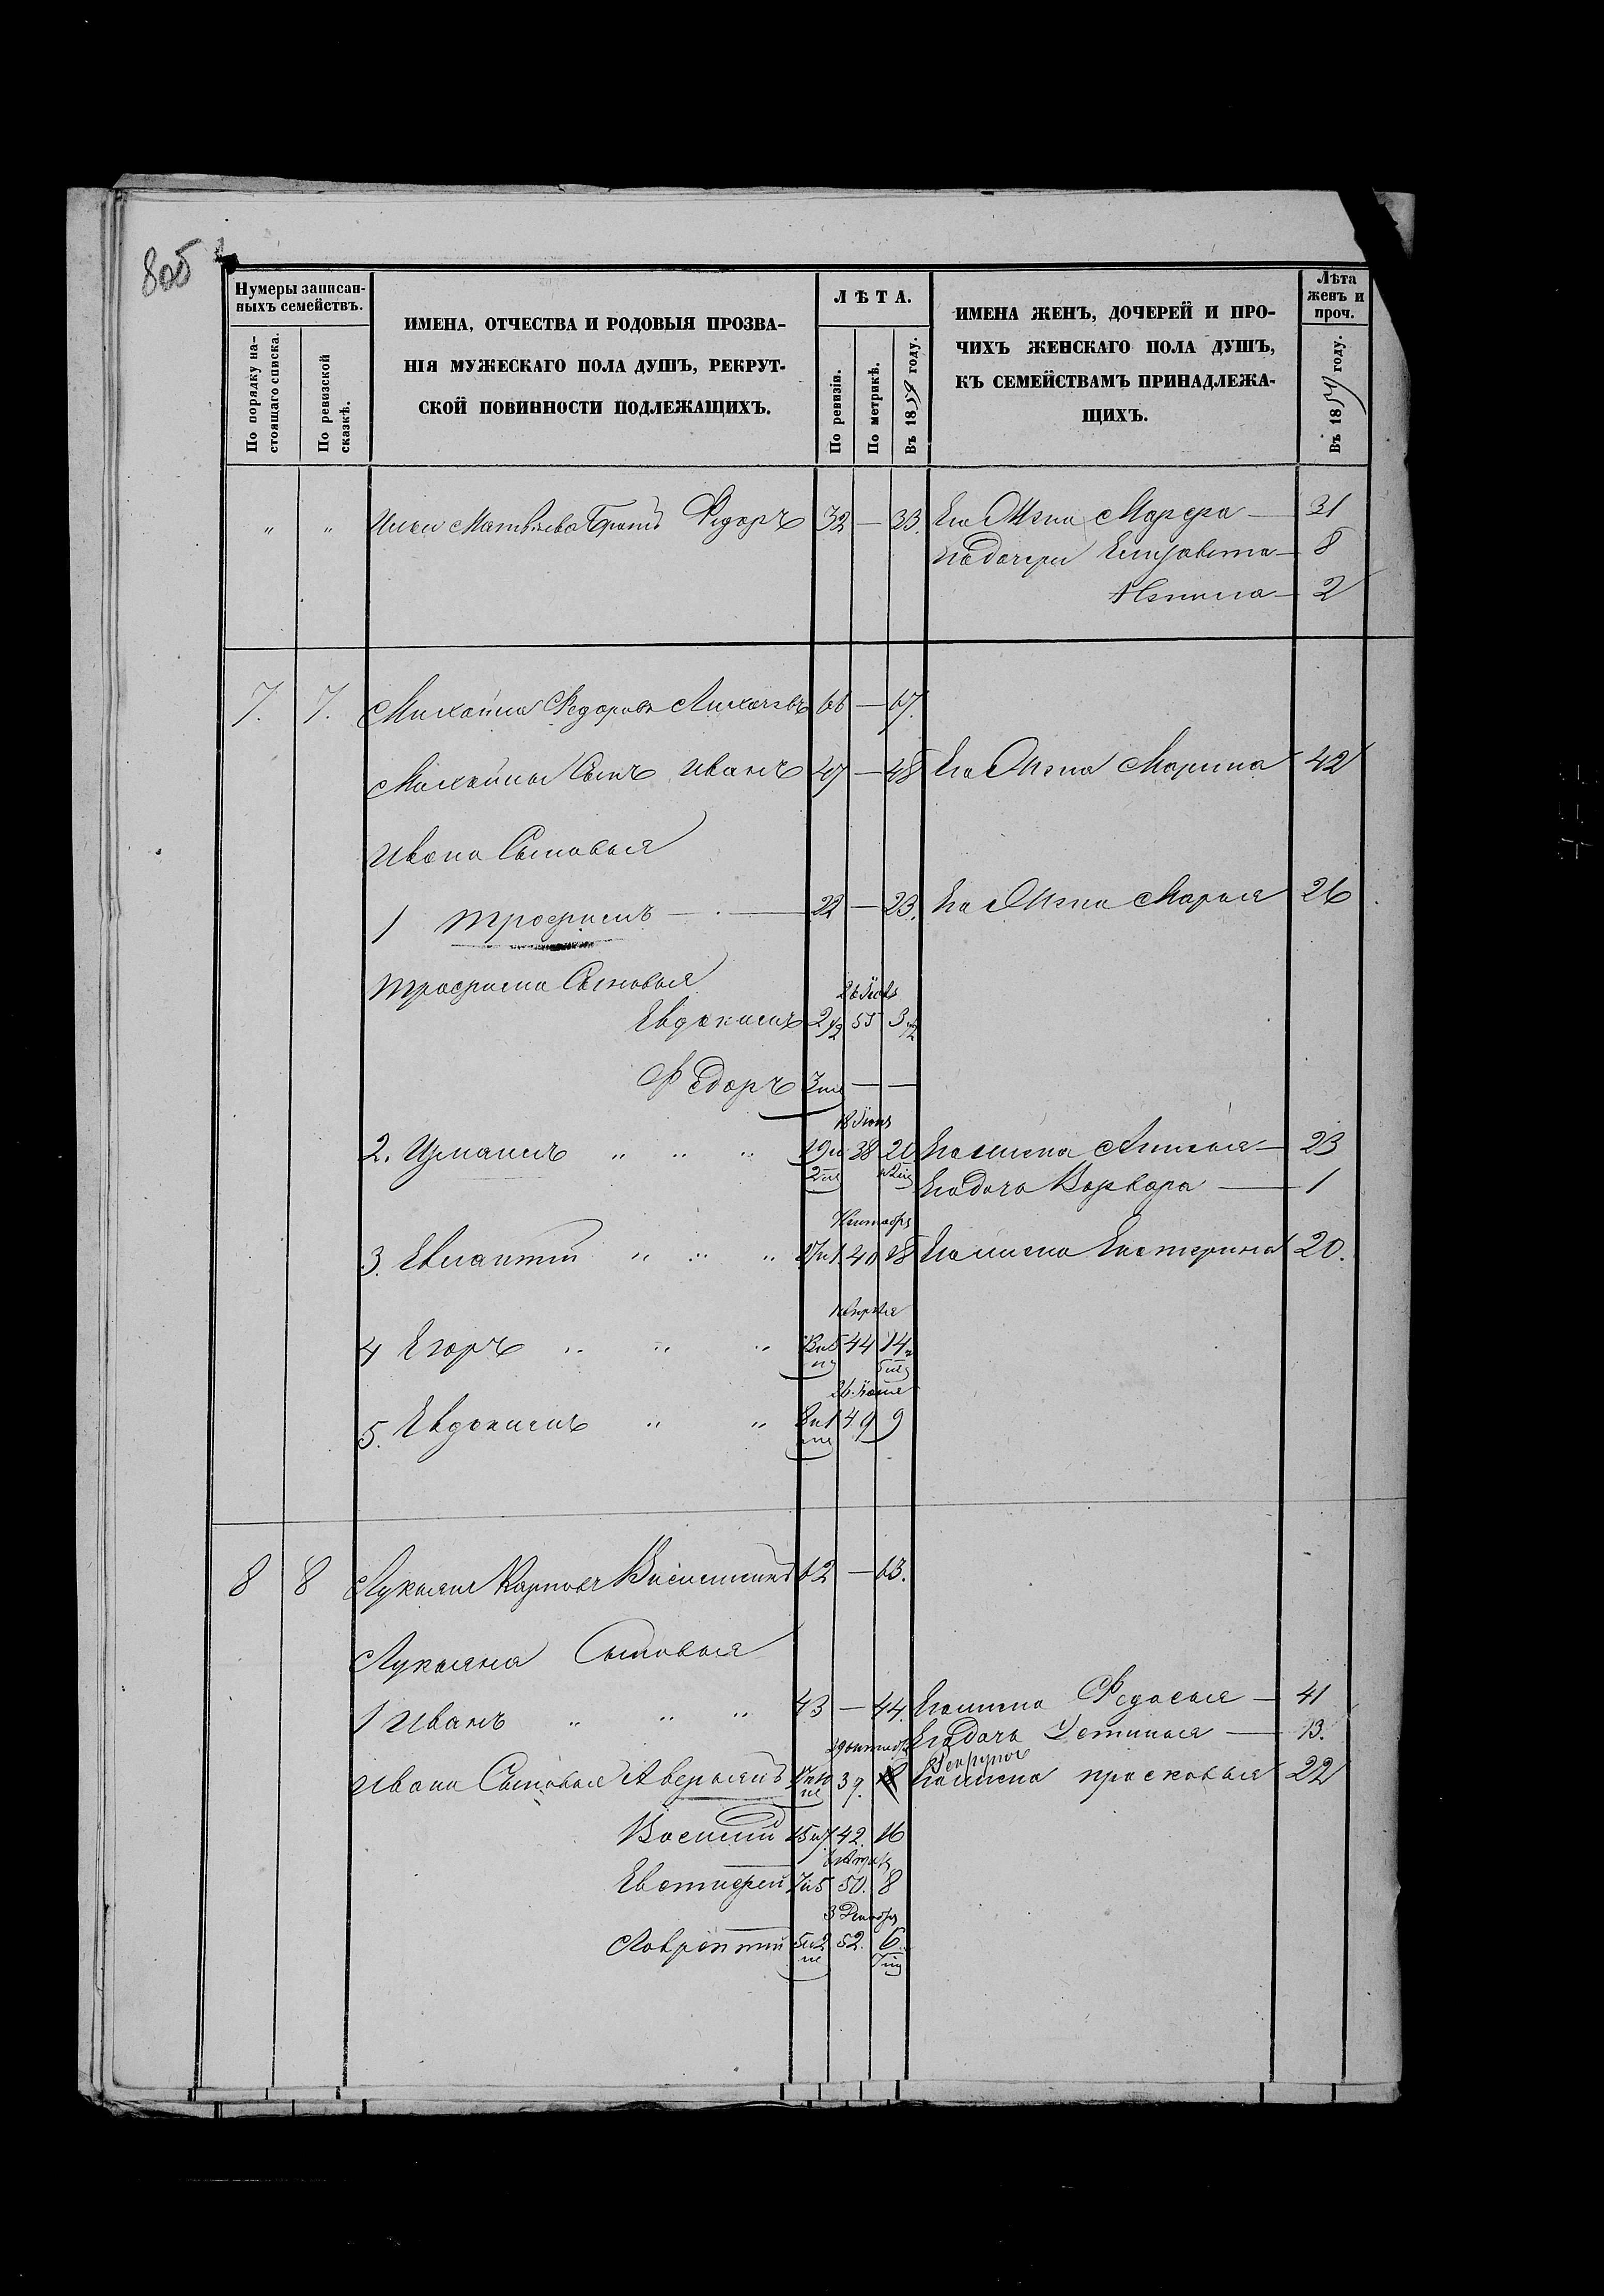 80об
Нумеры записан-
ныхъ семействъ.
По порядку на-
стоящаго списка.
По ревизской
сказкѣ.
ИМЕНА, ОТЧЕСТВА И РОДОВЫЯ ПРОЗВА-
НІЯ МУЖЕСКАГО ПОЛА ДУШЪ, РЕКРУТ-
СКОЙ ПОВИННОСТИ ПОДЛЕЖАЩИХЪ.
ЛѢТА.
По ревизіи.
По метрикѣ.
Въ 1859 году.
ИМЕНА ЖЕНЪ, ДОЧЕРЕЙ И ПРО-
ЧИХЪ ЖЕНСКАГО ПОЛА ДУШЪ,
КЪ СЕМЕЙСТВАМЪ ПРИНАДЛЕЖА-
ЩИХЪ.
Лѣта
женъ и
проч.
Въ 1859 году.
" " Матвѣева Братъ Федоръ 32 — 33. Его Жена Марфа — 31
Его дочери Елизавета — 8
2
7. 7. Михайла Федоровъ 66 — 67.
Михайлы Сынъ Иванъ 47 — 48 Его Жена Марина 42
Ивана Сыновья
1 Трофимъ — 22 — 23. Его Жена Марья 26
Трофима Сыновья
Евдокимъ 2 1/2 55 3
Федоръ — —
18 Іюня
2. " " " 38 20 Его жена 23
Его дочь Варвара — 1
3. Евлампій " " " 40 18 Его жена Екатерина 20.
Апрѣля
4 Егоръ " " " 44 14
5. Евдокимъ " " 49 9
8 8 Лукьянъ Карповъ 62 — 63.
Лукьяна Сыновья
1 Иванъ " " " 43 — 44. Его жена Федосья — 41
Его дочь Устинья — 13.
Ивана Сыновья Аверьянъ 39. Его жена Прасковья 22
Василій 15 42. 16
Евстифей 7 и 5 50. 8
3 Декабря
Лаврентій 5 и 2 52. 6